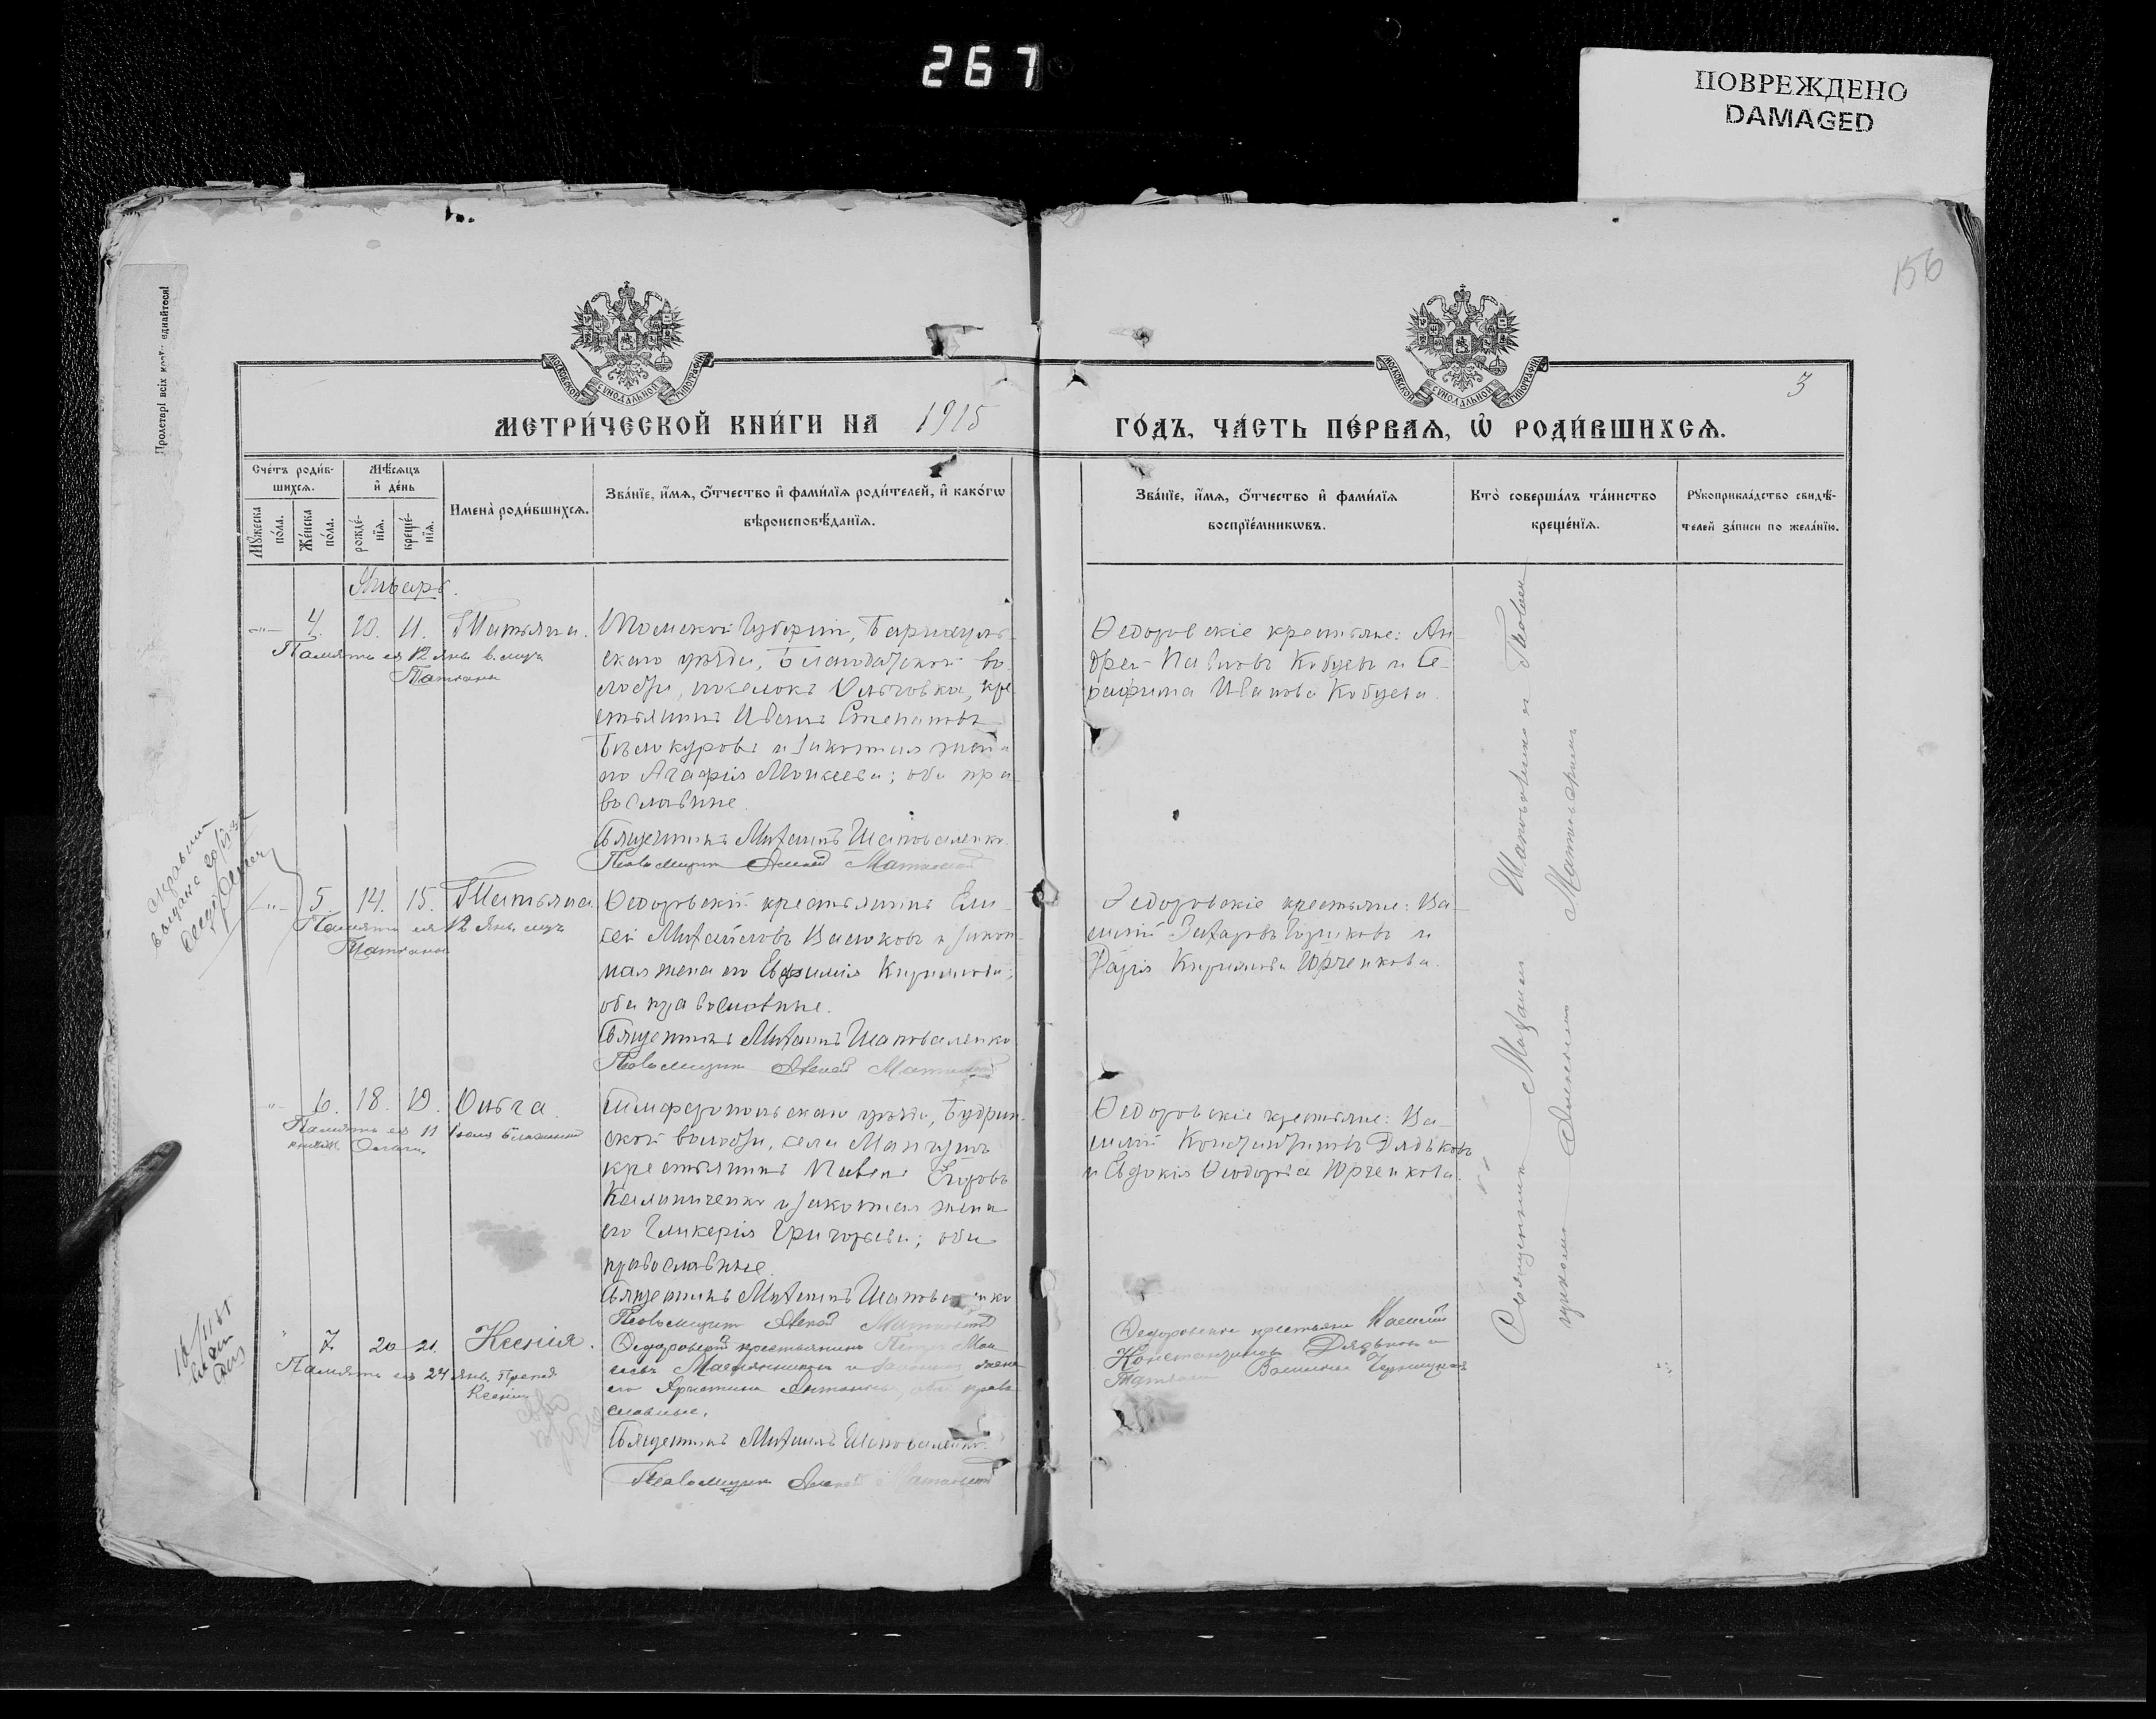 267
ПОВРЕЖДЕНО
DAMAGED
156
3
Пролетарі всіх
МОСКОВСКОЙ СѴНОДАЛЬНОЙ ТИПОГРАФІИ
МОСКОВСКОЙ СѴНОДАЛЬНОЙ ТИПОГРАФІИ
МЕТРИ́ЧЕСКОЙ КНИ́ГИ НА 1915 ГО́ДЪ, ЧА́СТЬ ПЕ́РВАѦ, Ѡ҆ РОДИ́ВШИХСѦ.
Сче́тъ роди́в-
шихсѧ.
Мꙋ́жеска по́ла.
Же́нска по́ла.
Мѣ́сѧцъ
и҆ де́нь
рожде́-
нїѧ.
креще́-
нїѧ.
Имена̀ роди́вшихсѧ.
Зва́нїе, и҆́мѧ, ѻ҆́тчество и҆ фами́лїѧ роди́телей, и҆ како́гѡ
вѣроисповѣ́данїѧ.
Зва́нїе, и҆́мѧ, ѻ҆́тчество и҆ фами́лїѧ
воспрїе́мникѡвъ.
Кто̀ соверша́лъ та́инство
креще́нїѧ.
Рꙋкоприкла́дство свидѣ́-
телей за́писи по жела́нїю.
Январь.
4. 10. 11. Татьяна.
Память ея 12 янв. в. муч.
Татіаны
Томской губерніи, Барнауль-
скаго уѣзда, Благодатской во-
лости, поселка Ольговка, кре-
стьянинъ Иванъ Степановъ
Бѣлокуровъ и законная жена
его Агафія Моисеева; оба пра-
вославные.
Священникъ Михаилъ Шаповаленко
Псаломщикъ Алексѣй
Ѳедоровскіе крестьяне: Ан-
дрей Павловъ Кобцевъ и Се-
рафима Иванова Кобцева.
5 14. 15. Татьяна
Память ея 12 Янв. муч
Татіаны
Ѳедоровскій крестьянинъ Ели-
сей Михайловъ Волоковъ и закон-
ная жена его Евфимія Кирилова;
оба православные.
Священникъ Михаилъ Шаповаленко
Псаломщикъ Алексѣй
Ѳедоровскіе крестьяне: Ва-
силій Захаровъ и
Дарія Кирилова Юрченкова.
6. 18. 19. Ольга.
Память ея 11 Іюля
Ольги
Симферопольскаго уѣзда,
ской волости, села Мангушъ
крестьянинъ Павелъ Егоровъ
Калиниченко и законная жена
его Гликерія Григорьева; оба
православные.
Священникъ Михаилъ Шаповаленко
Псаломщикъ Алексѣй
Ѳедоровскіе крестьяне: Ва-
силій Константиновъ Дядьковъ
и Евдокія Ѳеодорова Юрченкова.
7. 20 21. Ксенія.
Память ея 24 янв. Препод
Ксеніи
Ѳедоровскій крестьянинъ Петръ Мои-
сеевъ и законная жена
его Христина Антонова оба право-
славные.
Священникъ Михаилъ Шаповаленко.
Псаломщикъ Алексѣй
Ѳедоровскіе крестьяне Василій
Константиновъ Дядьковъ и
Татьяна Васильева
Священникъ Михаилъ Шаповаленко и Псалом-
щикомъ Алексѣемъ